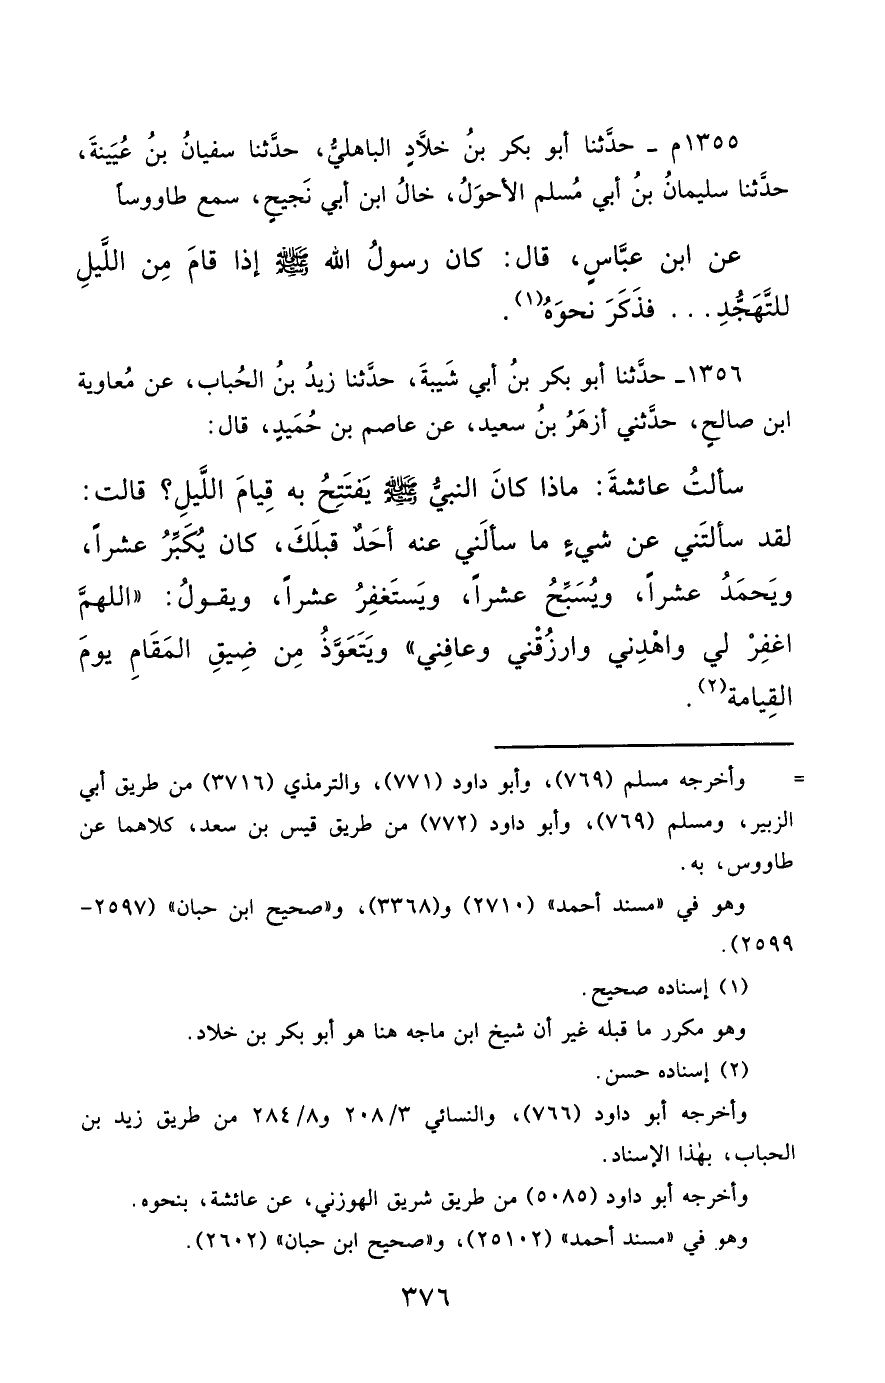 ١٣٥٥م ـ حدَّثنا أبو بكر بنُ خلاَّدٍ الباهليُّ، حدَّثنا سفيانُ بنُ عُيَينةَ،
حدَّثنا سليمانُ بنُ أبي مُسلم الأحوَلُ، خالُ ابن أبي نَجيحٍ، سمع طاووساً
عن ابن عبَّاسٍ، قال: كان رسولُ الله ﷺ إذا قامَ مِن اللَّيلِ
للتَّهَجُّدِ... فذَكَرَ نحوَهُ(١).
١٣٥٦ـ حدَّثنا أبو بكر بنُ أبي شَيبةَ، حدَّثنا زيدُ بنُ الحُباب، عن مُعاوية
ابن صالحٍ، حدَّثني أزهَرُ بنُ سعيد، عن عاصم بن حُمَيدٍ، قال:
سألتُ عائشةَ: ماذا كانَ النبيُّ ﷺ يَفتَتِحُ به قِيامَ اللَّيلِ؟ قالت:
لقد سألتَني عن شيءٍ ما سألَني عنه أحَدٌ قبلَكَ، كان يُكَبِّرُ عشراً،
ويَحمَدُ عشراً، ويُسَبِّحُ عشراً، ويَستَغفِرُ عشراً، ويقولُ: «اللهمَّ
اغفِرْ لي واهْدِني وارزُقْني وعافِني» ويَتَعَوَّذُ مِن ضِيقِ المَقَامِ يومَ
القِيامة(٢).
= وأخرجه مسلم (٧٦٩)، وأبو داود (٧٧١)، والترمذي (٣٧١٦) من طريق أبي
الزبير، ومسلم (٧٦٩)، وأبو داود (٧٧٢) من طريق قيس بن سعد، كلاهما عن
طاووس، به.
وهو في «مسند أحمد» (٢٧١٠) و(٣٣٦٨)، و«صحيح ابن حبان» (٢٥٩٧-
٢٥٩٩).
(١) إسناده صحيح.
وهو مكرر ما قبله غير أن شيخ ابن ماجه هنا هو أبو بكر بن خلاد.
(٢) إسناده حسن.
وأخرجه أبو داود (٧٦٦)، والنسائي ٢٠٨/٣ و٢٨٤/٨ من طريق زيد بن
الحباب، بهٰذا الإسناد.
وأخرجه أبو داود (٥٠٨٥) من طريق شريق الهوزني، عن عائشة، بنحوه.
وهو في «مسند أحمد» (٢٥١٠٢)، و«صحيح ابن حبان» (٢٦٠٢).
٣٧٦